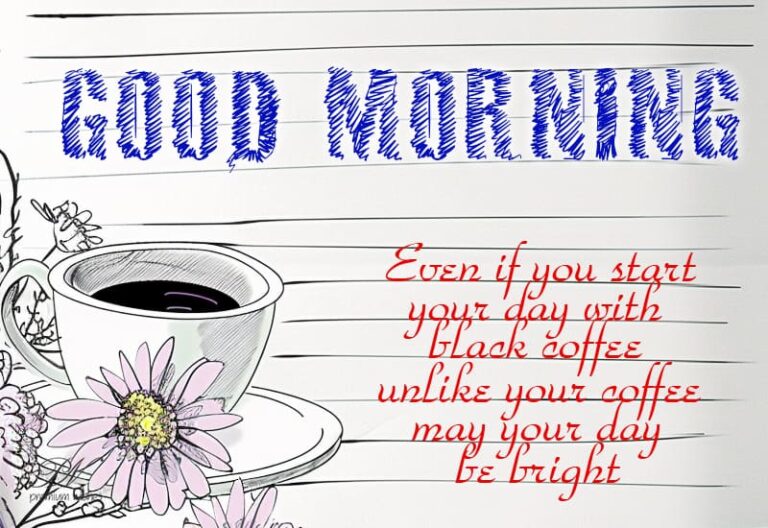 GOOD MORNING
Even if you start
your day with
black coffee
unlike your coffee
may your day
be bright